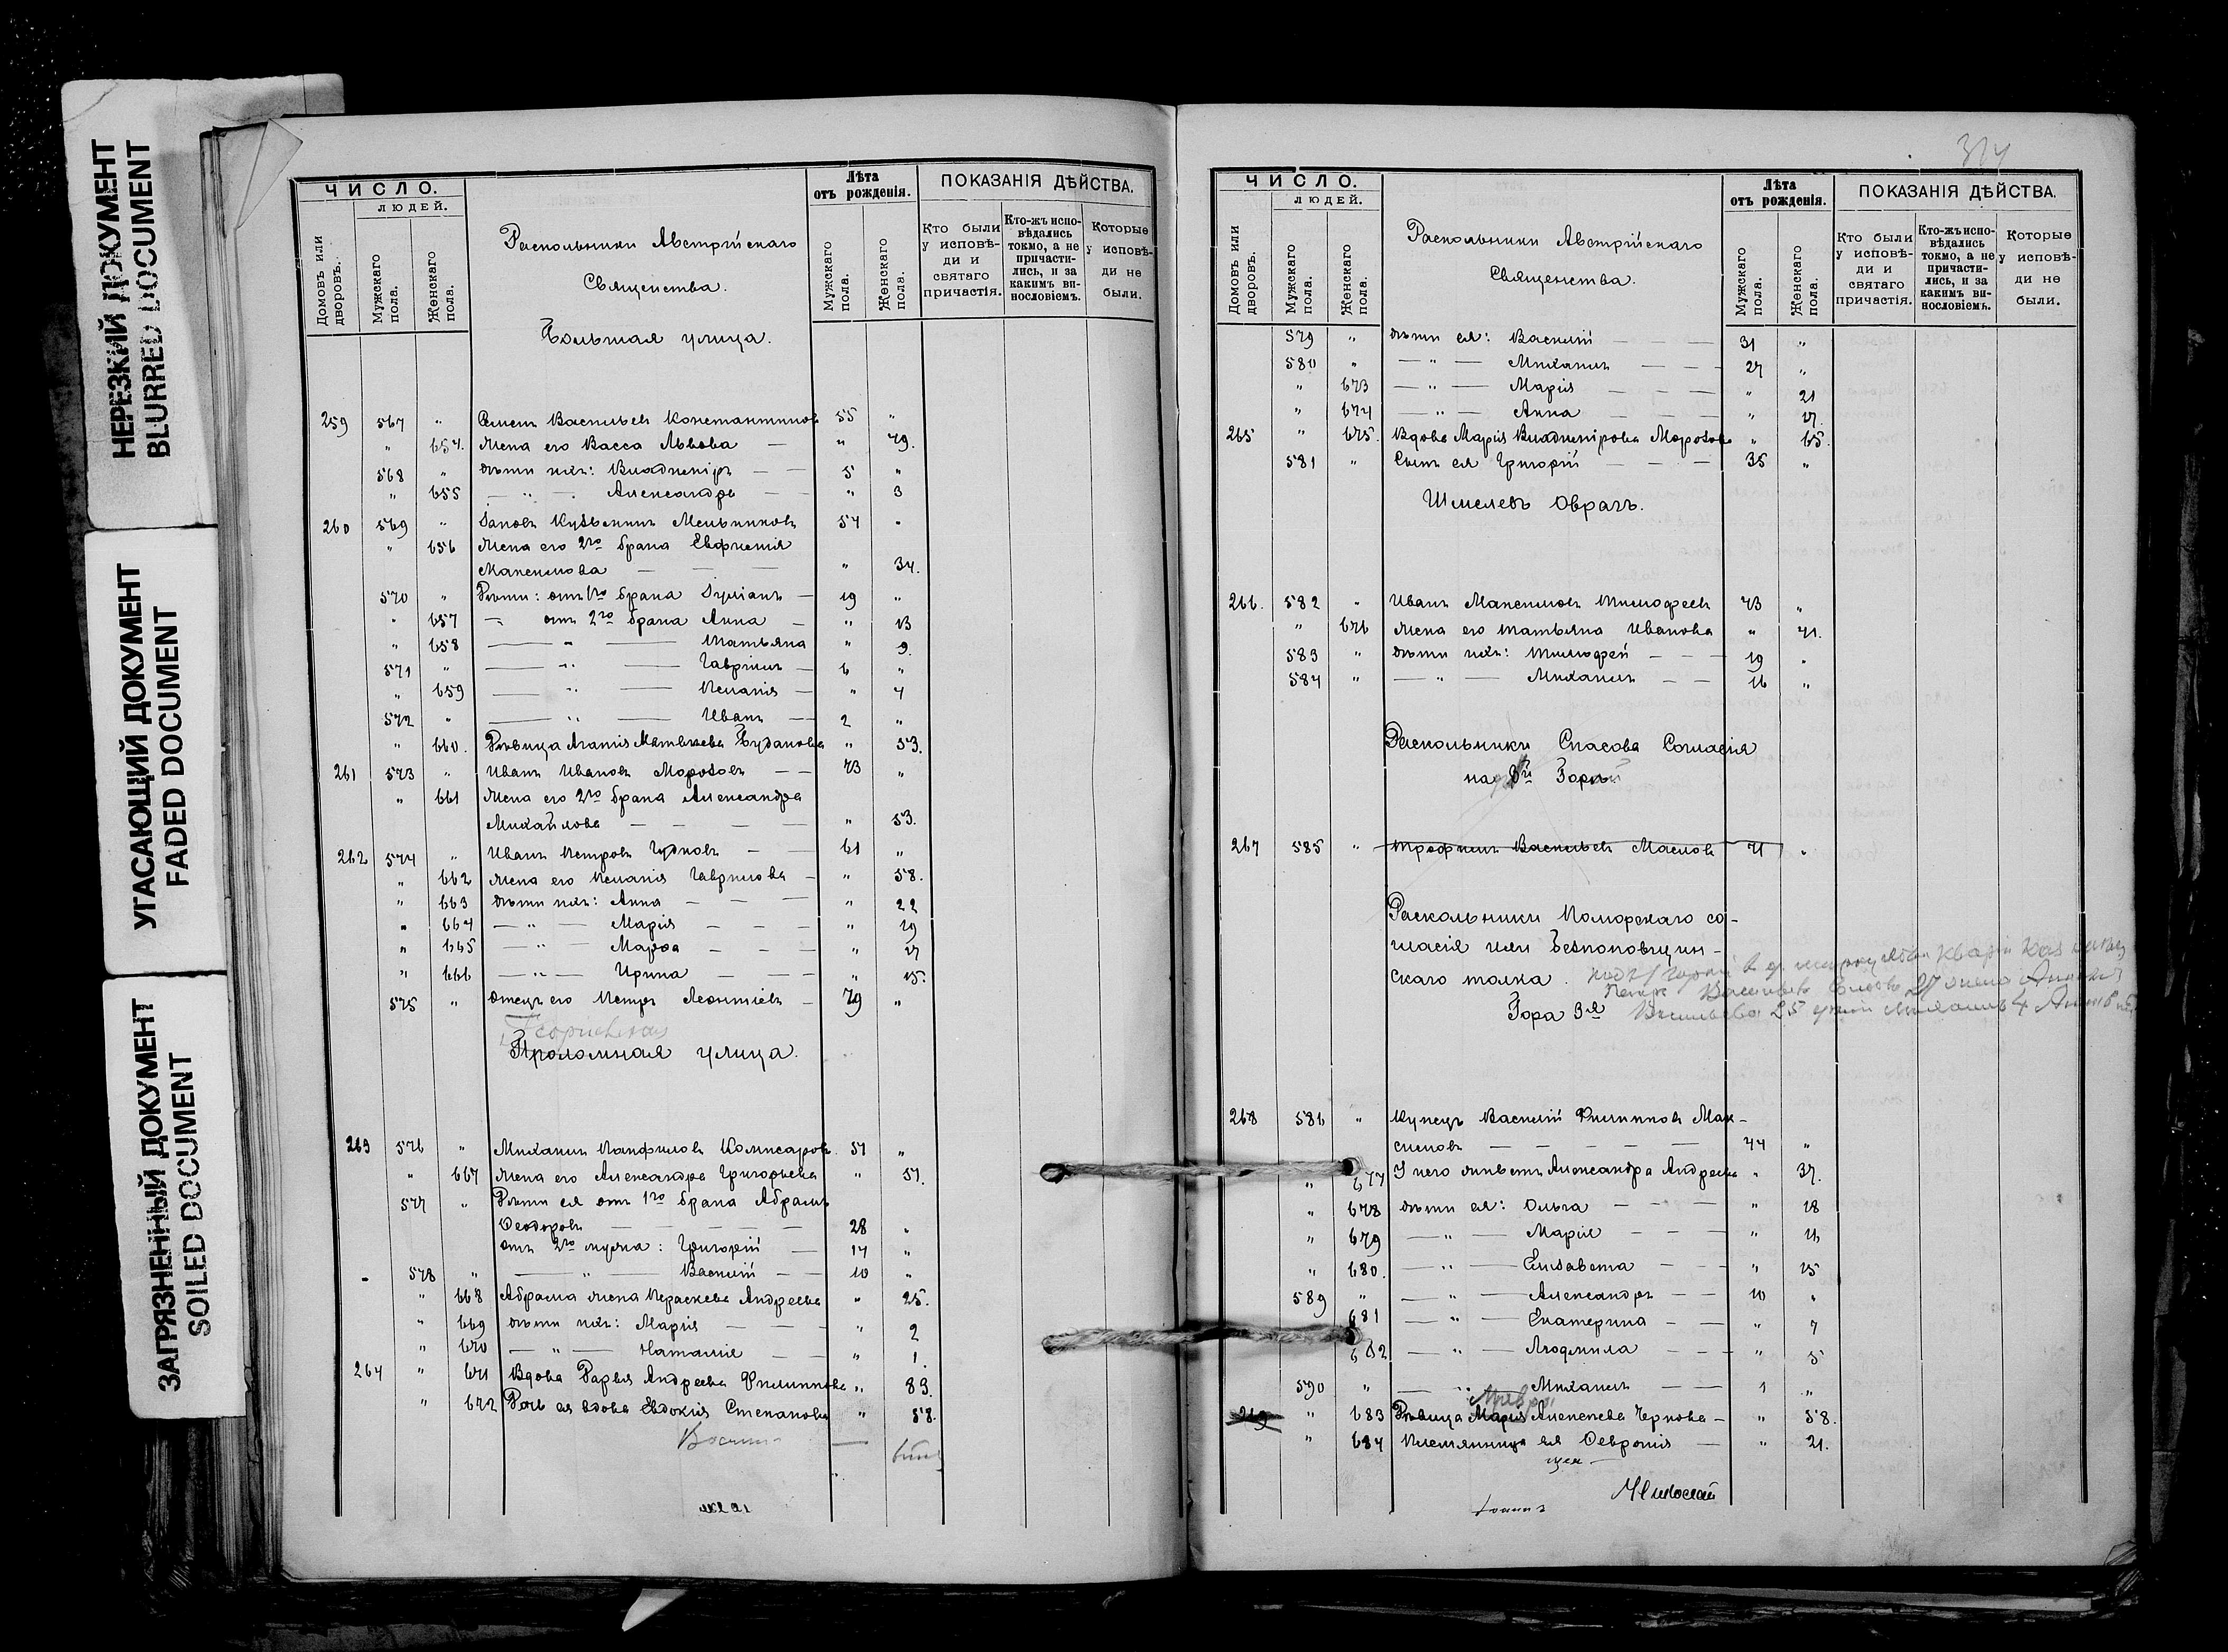 НЕРЕЗКИЙ ДОКУМЕНТ
BLURRED DOCUMENT
УГАСАЮЩИЙ ДОКУМЕНТ
FADED DOCUMENT
ЗАГРЯЗНЕННЫЙ ДОКУМЕНТ
SOILED DOCUMENT
ЧИСЛО.
ЛЮДЕЙ.
Домовъ или дворовъ.
Мужскаго пола.
Женскаго пола.
Раскольники Австрійскаго
Священства.
Большая улица.
Лѣта
отъ рожденія.
Мужскаго пола.
Женскаго пола.
ПОКАЗАНІЯ ДѢЙСТВА.
Кто были у исповѣ-ди и святаго причастія.
Кто-жъ испо-вѣдались токмо, а не причасти-лись, и за какимъ ви-нословіемъ.
Которые у исповѣ-ди не были.
259 567 " Семенъ Васильевъ Константиновъ 55 "
" 654. Жена его Васса Львова — " 49.
568 " дѣти ихъ: Владиміръ — — 5 "
" 655 — " — Александра — — " 3
260 569 " Іаковъ Кузьминъ Мельниковъ 54 "
" 656 Жена его 2го брака Евфимія
Максимова — — — " 34.
570 " Дѣти: отъ 1го брака Іуліанъ — 19 "
" 657 — отъ 2го брака Анна — " 13
" 658 — " — Татьяна " 9.
571 " — " — Гавріилъ — 6 "
" 659 — " — Пелагія — " 4
572 " — " — Иванъ — 2 "
" 660. Дѣвица Агапія Матвѣева Буданова " 53.
261 573 " Иванъ Ивановъ Морозовъ — — 73 "
" 661 Жена его 2го брака Александра
Михайлова — — — — " 53.
262 574 " Иванъ Петровъ Гудковъ — — 61 "
" 662 Жена его Пелагія Гаврилова — " 58.
" 663 дѣти ихъ: Анна — — — " 22
" 664 — " — Марія — — — " 19
" 665 — " — Марѳа — — — " 17
" 666 — " — Ирина — — — " 15.
575 " Отецъ его Петръ Леонтіевъ — 79 "
Георгіевская
Проломная улица.
263 576 " Михаилъ Панфиловъ Комисаровъ. 51 "
" 667 Жена его Александра Григорьева " 51.
577 " Дѣти ея отъ 1го брака Абрамъ
Ѳеодоровъ — — — — 28 "
отъ 2го мужа: Григорій — 14 "
578 " — " — Василій — — 10 "
" 668 Абрама жена Параскева Андреева " 25.
" 669 дѣти ихъ: Марія — — — " 2
" 670 — " — Наталія — — " 1.
264 " 671 Вдова Дарья Андреева Филиппова " 83.
" 672 Дочь ея вдова Евдокія Степанова " 58.
ЧИСЛО.
ЛЮДЕЙ.
Домовъ или дворовъ.
Мужскаго пола.
Женскаго пола.
Раскольники Австрійскаго
Священства.
Лѣта
отъ рожденія.
Мужскаго пола.
Женскаго пола.
ПОКАЗАНІЯ ДѢЙСТВА.
Кто были у исповѣ-ди и святаго причастія.
Кто-жъ испо-вѣдались токмо, а не причасти-лись, и за какимъ ви-нословіемъ.
Которые у исповѣ-ди не были.
579 " дѣти ея: Василій — — — 31 "
580 " — " — Михаилъ — — — 27 "
" 673 — " — Марія — — — " 21
" 674 — " — Анна — — — " 17.
265 " 675. Вдова Марія Владимірова Морозова " 65.
581 " Сынъ ея Григорій — — — 35 "
Шмелевъ Оврагъ.
266. 582 " Иванъ Максимовъ Тимофеевъ 43 "
" 676 Жена его Татьяна Иванова " 41.
583 " дѣти ихъ: Тимофей — — — 19 "
584 " — " — Михаилъ — — 16 "
Раскольники Спасова Согласія
267 585 " Трофимъ Васильевъ Масловъ 71 "
Раскольники Поморскаго со-
гласія или Безпоповщин-
скаго толка.
Гора 3я
268 586 " Купецъ Василій Филипповъ Мак-
симовъ — — — — — 44 "
" 677 У него живетъ Александра Андреева " 37.
" 678 дѣти ея: Ольга — — — " 18
" 679 — " — Марія — — — " 16
" 680. — " — Елизавета — — " 15
589 " — " — Александръ — — 10 "
681 — " — Екатерина — — " 7
682 — " — Людмила — — — " 5
590 " — " — Михаилъ — — 1 "
269 " 683 Дѣвица Марія Алексѣева Чернова — " 58.
" 684 Племянница ея Ѳевронія — " 21.